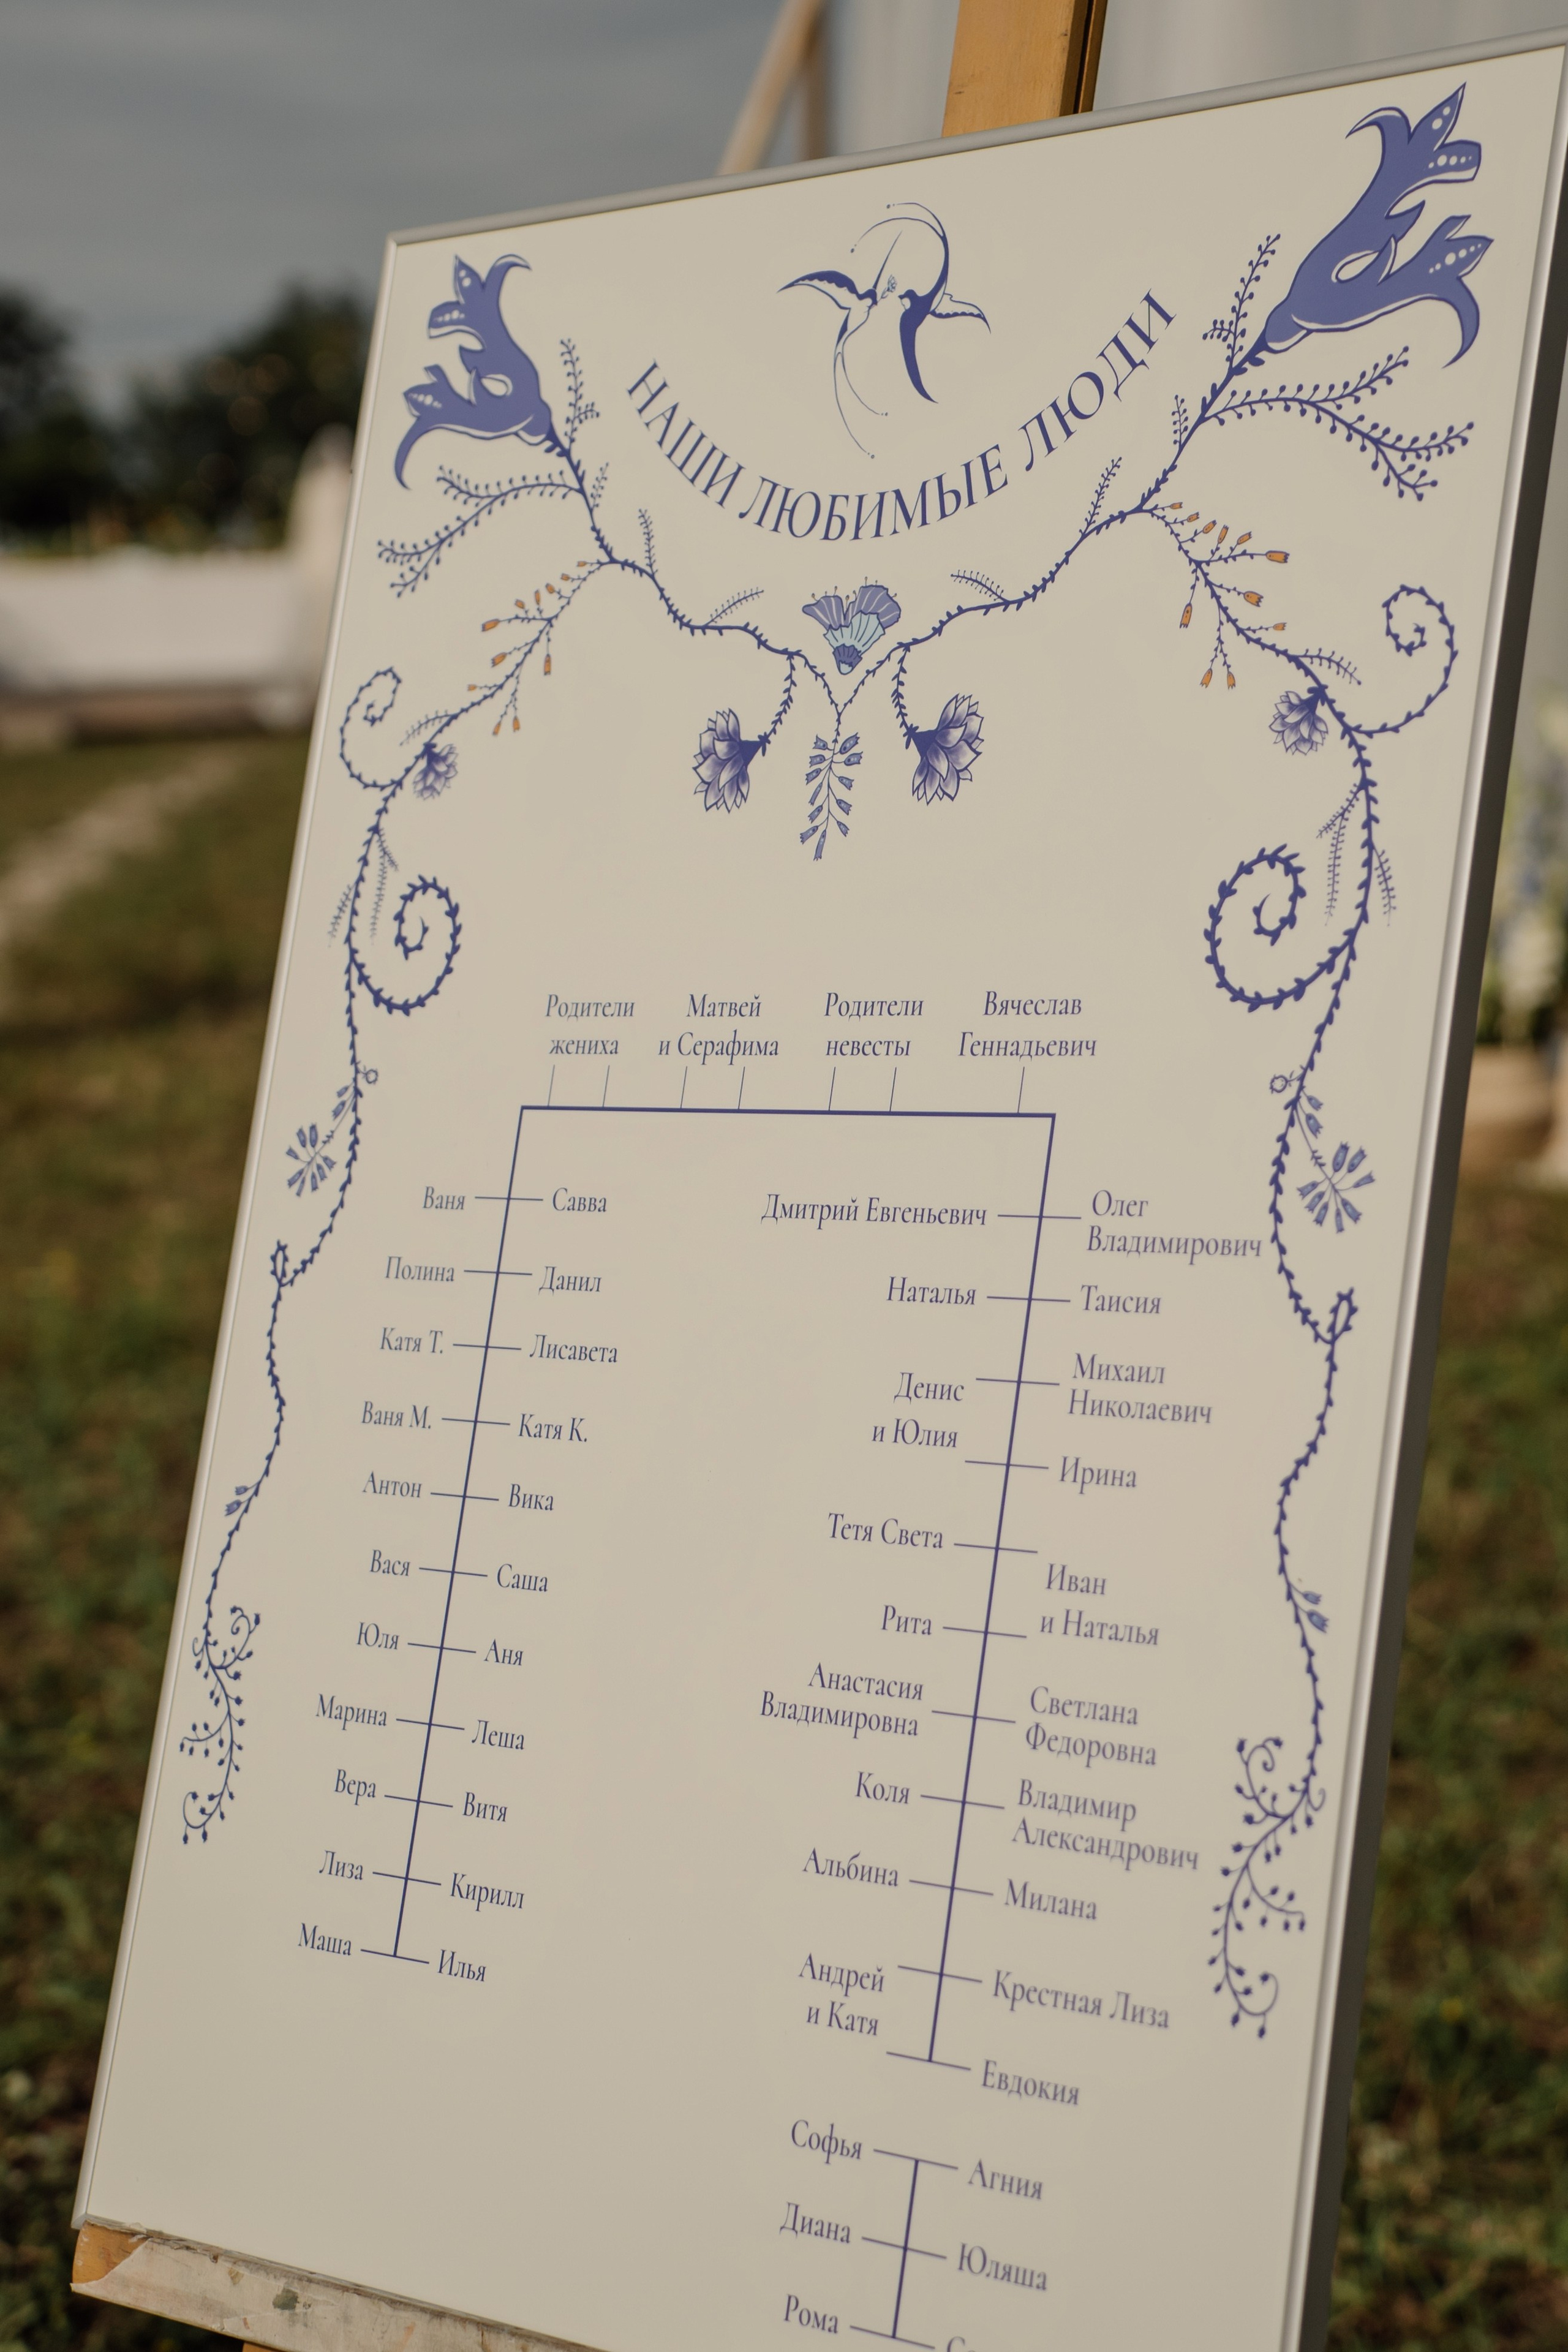 НАШИ ЛЮБИМЫЕ ЛЮДИ
Родители
жениха
Матвей
и Серафима
Родители
невесты
Вячеслав
Геннадьевич
Ваня
Савва
Полина
Данил
Катя Т.
Лисавета
Ваня М.
Катя К.
Антон
Вика
Вася
Саша
Юля
Аня
Марина
Леша
Вера
Витя
Лиза
Кирилл
Маша
Илья
Дмитрий Евгеньевич
Олег
Владимирович
Наталья
Таисия
Денис
и Юлия
Михаил
Николаевич
Ирина
Тетя Света
Иван
и Наталья
Рита
Анастасия
Владимировна
Светлана
Федоровна
Коля
Владимир
Александрович
Альбина
Милана
Андрей
и Катя
Крестная Лиза
Евдокия
Софья
Агния
Диана
Юляша
Рома